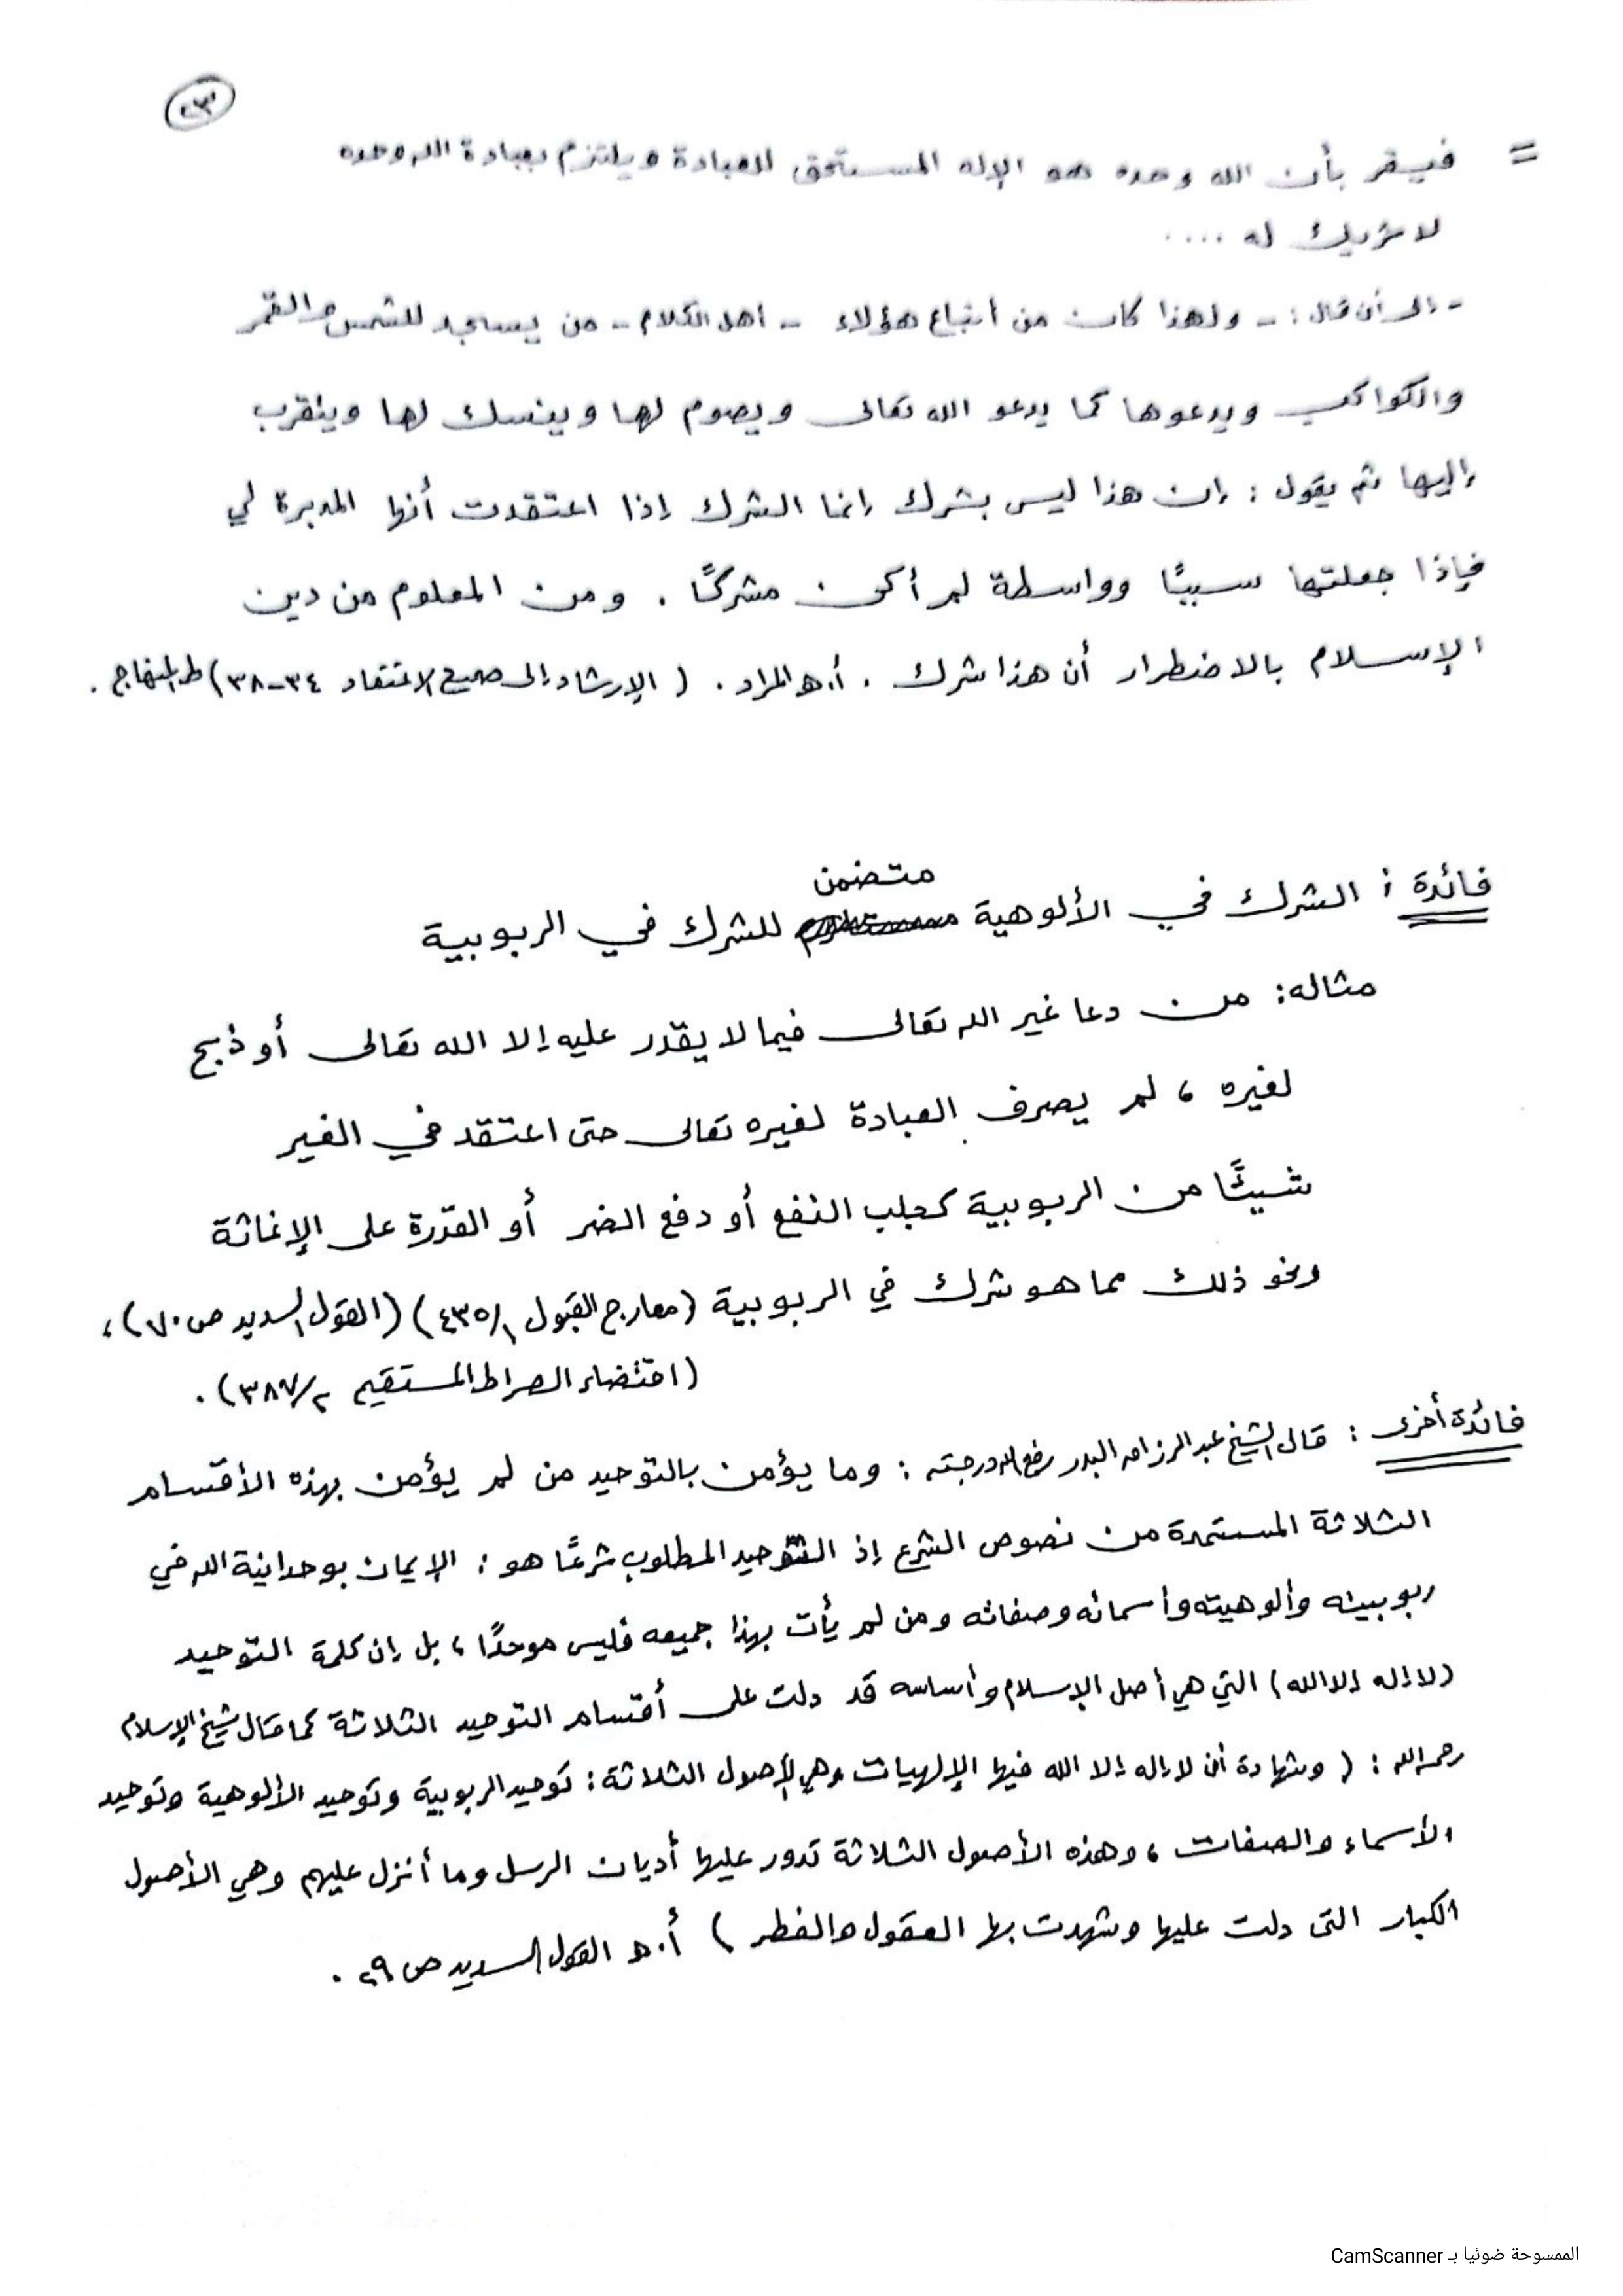 ٢٣
= فيقر بأن الله وحده هو الإله المستحق للعبادة ويلتزم بعبادة الله وحده
لا شريك له ....
- إلى أن قال : - ولهذا كان من أتباع هؤلاء - أهل الكلام - من يسجد للشمس والقمر
والكواكب ويدعوها كما يدعو الله تعالى ويصوم لها وينسك لها ويتقرب
إليها ثم يقول : إن هذا ليس بشرك إنما الشرك إذا اعتقدت أنها المدبرة لي
فإذا جعلتها سببًا وواسطة لم أكن مشركًا . ومن المعلوم من دين
الإسلام بالاضطرار أن هذا شرك . أ.هـ المراد . ( الإرشاد إلى صحيح الاعتقاد ٣٤-٣٨) ط المنهاج .
فائدة : الشرك في الألوهية متضمن للشرك في الربوبية
مثاله : من دعا غير الله تعالى فيما لا يقدر عليه إلا الله تعالى أو ذبح
لغيره ، لم يصرف العبادة لغيره تعالى حتى اعتقد في الغير
شيئًا من الربوبية كجلب النفع أو دفع الضر أو القدرة على الإغاثة
ونحو ذلك مما هو شرك في الربوبية (معارج القبول ٤٣٥/١) (القول السديد ص ٧٠) ،
(اقتضاء الصراط المستقيم ٣٨٧/٢) .
فائدة أخرى : قال الشيخ عبد الرزاق البدر رفع الله درجته : وما يؤمن بالتوحيد من لم يؤمن بهذه الأقسام
الثلاثة المستمدة من نصوص الشرع إذ التوحيد المطلوب شرعًا هو : الإيمان بوحدانية الله في
ربوبيته وألوهيته وأسمائه وصفاته ومن لم يأت بهذا جميعه فليس موحدًا ، بل إن كلمة التوحيد
(لا إله إلا الله) التي هي أصل الإسلام وأساسه قد دلت على أقسام التوحيد الثلاثة كما قال شيخ الإسلام
رحمه الله : ( وشهادة أن لا إله إلا الله فيها الإلهيات وهي الأصول الثلاثة : توحيد الربوبية وتوحيد الألوهية وتوحيد
الأسماء والصفات ، وهذه الأصول الثلاثة تدور عليها أديان الرسل وما أنزل عليهم وهي الأصول
الكبار التى دلت عليها وشهدت بها العقول والفطر ) أ.هـ القول السديد ص ٢٩ .
الممسوحة ضوئيا بـ CamScanner